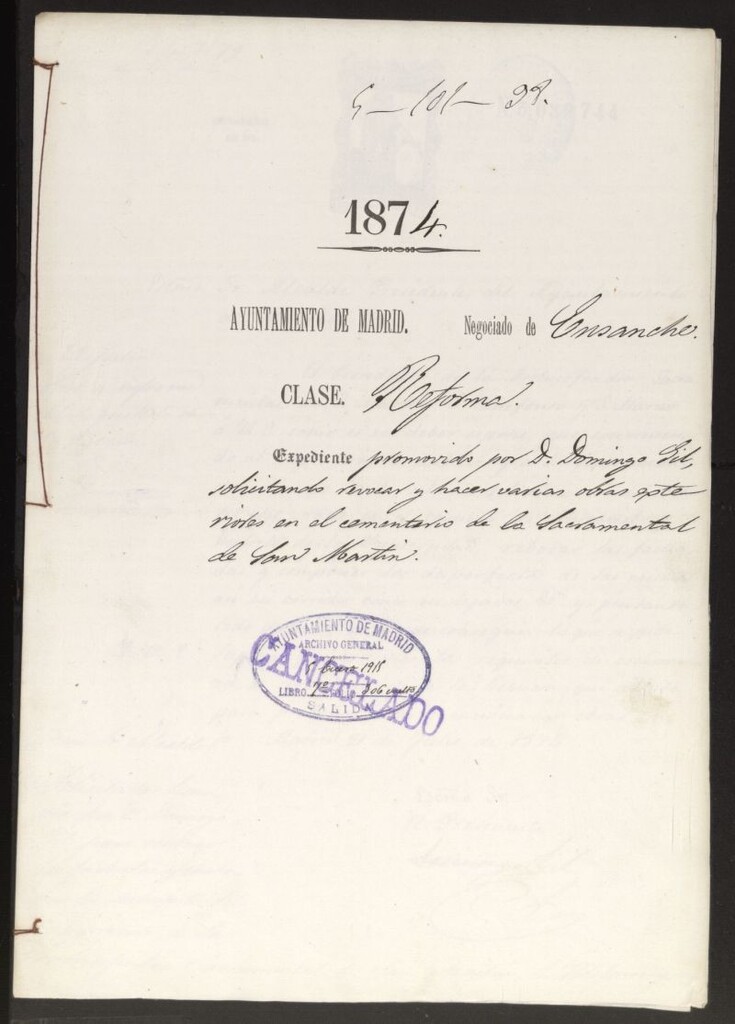 5-101-98.
1874.
AYUNTAMIENTO DE MADRID. Negociado de Ensanche.
CLASE. Reforma.
Expediente promovido por D. Domingo Gil,
solicitando revocar y hacer varias obras exte
riores en el cementerio de la Sacramental
de San Martin.
AYUNTAMIENTO DE MADRID
ARCHIVO GENERAL
Enero 1918
LIBRO 7º FOLIO 306
SALIDA
CANCELADO